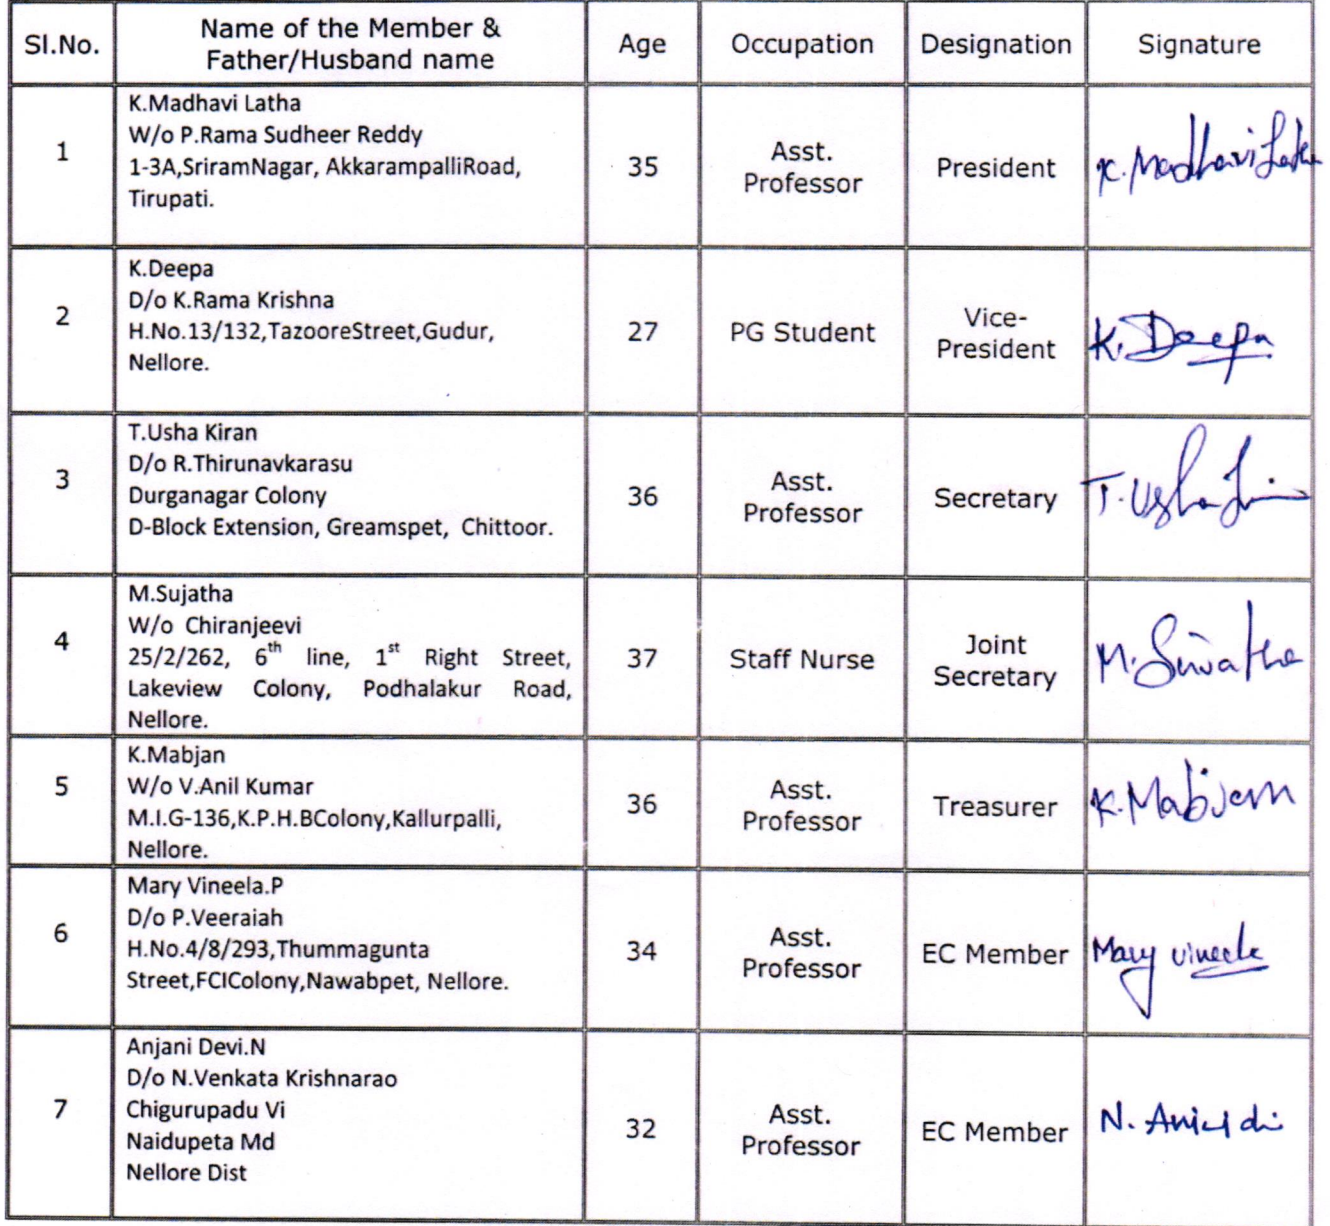 Sl.No.
Name of the Member &
Father/Husband name
Age
Occupation
Designation
Signature
1
K.Madhavi Latha
W/o P.Rama Sudheer Reddy
1-3A,SriramNagar, AkkarampalliRoad,
Tirupati.
35
Asst.
Professor
President
K. Madhavi Latha
2
K.Deepa
D/o K.Rama Krishna
H.No.13/132,TazooreStreet,Gudur,
Nellore.
27
PG Student
Vice-
President
K. Deepa
3
T.Usha Kiran
D/o R.Thirunavkarasu
Durganagar Colony
D-Block Extension, Greamspet, Chittoor.
36
Asst.
Professor
Secretary
T. Usha
4
M.Sujatha
W/o Chiranjeevi
25/2/262, 6th line, 1st Right Street,
Lakeview Colony, Podhalakur Road,
Nellore.
37
Staff Nurse
Joint
Secretary
M. Sujatha
5
K.Mabjan
W/o V.Anil Kumar
M.I.G-136,K.P.H.BColony,Kallurpalli,
Nellore.
36
Asst.
Professor
Treasurer
K. Mabjan
6
Mary Vineela.P
D/o P.Veeraiah
H.No.4/8/293,Thummagunta
Street,FCIColony,Nawabpet, Nellore.
34
Asst.
Professor
EC Member
Mary vineela
7
Anjani Devi.N
D/o N.Venkata Krishnarao
Chigurupadu Vi
Naidupeta Md
Nellore Dist
32
Asst.
Professor
EC Member
N.